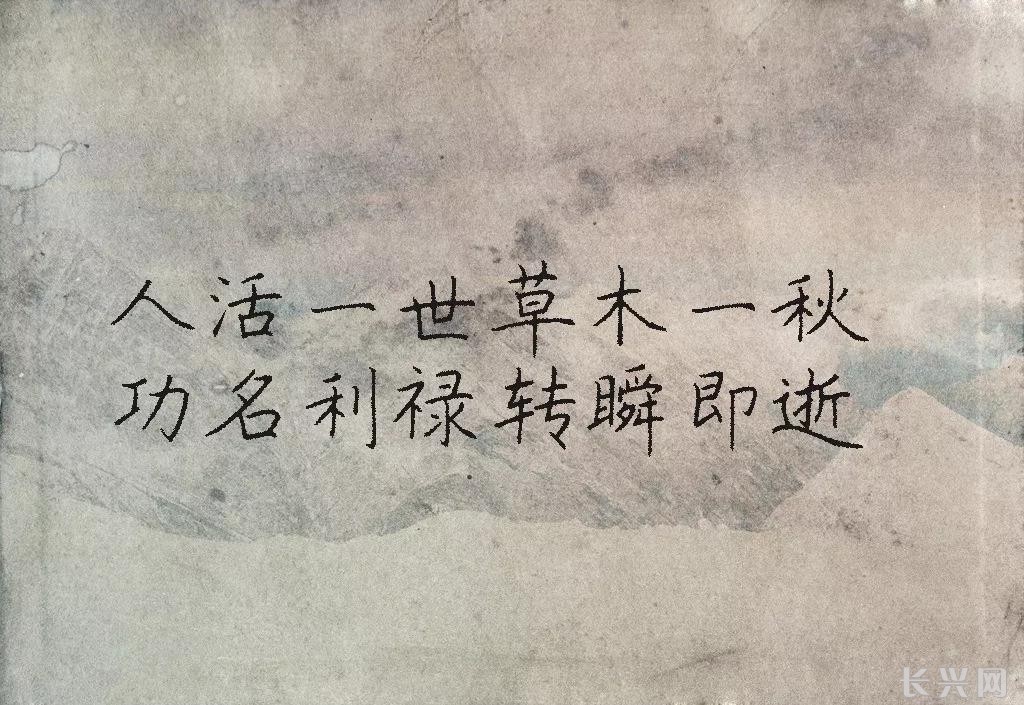 人活一世草木一秋
功名利禄转瞬即逝
长兴网